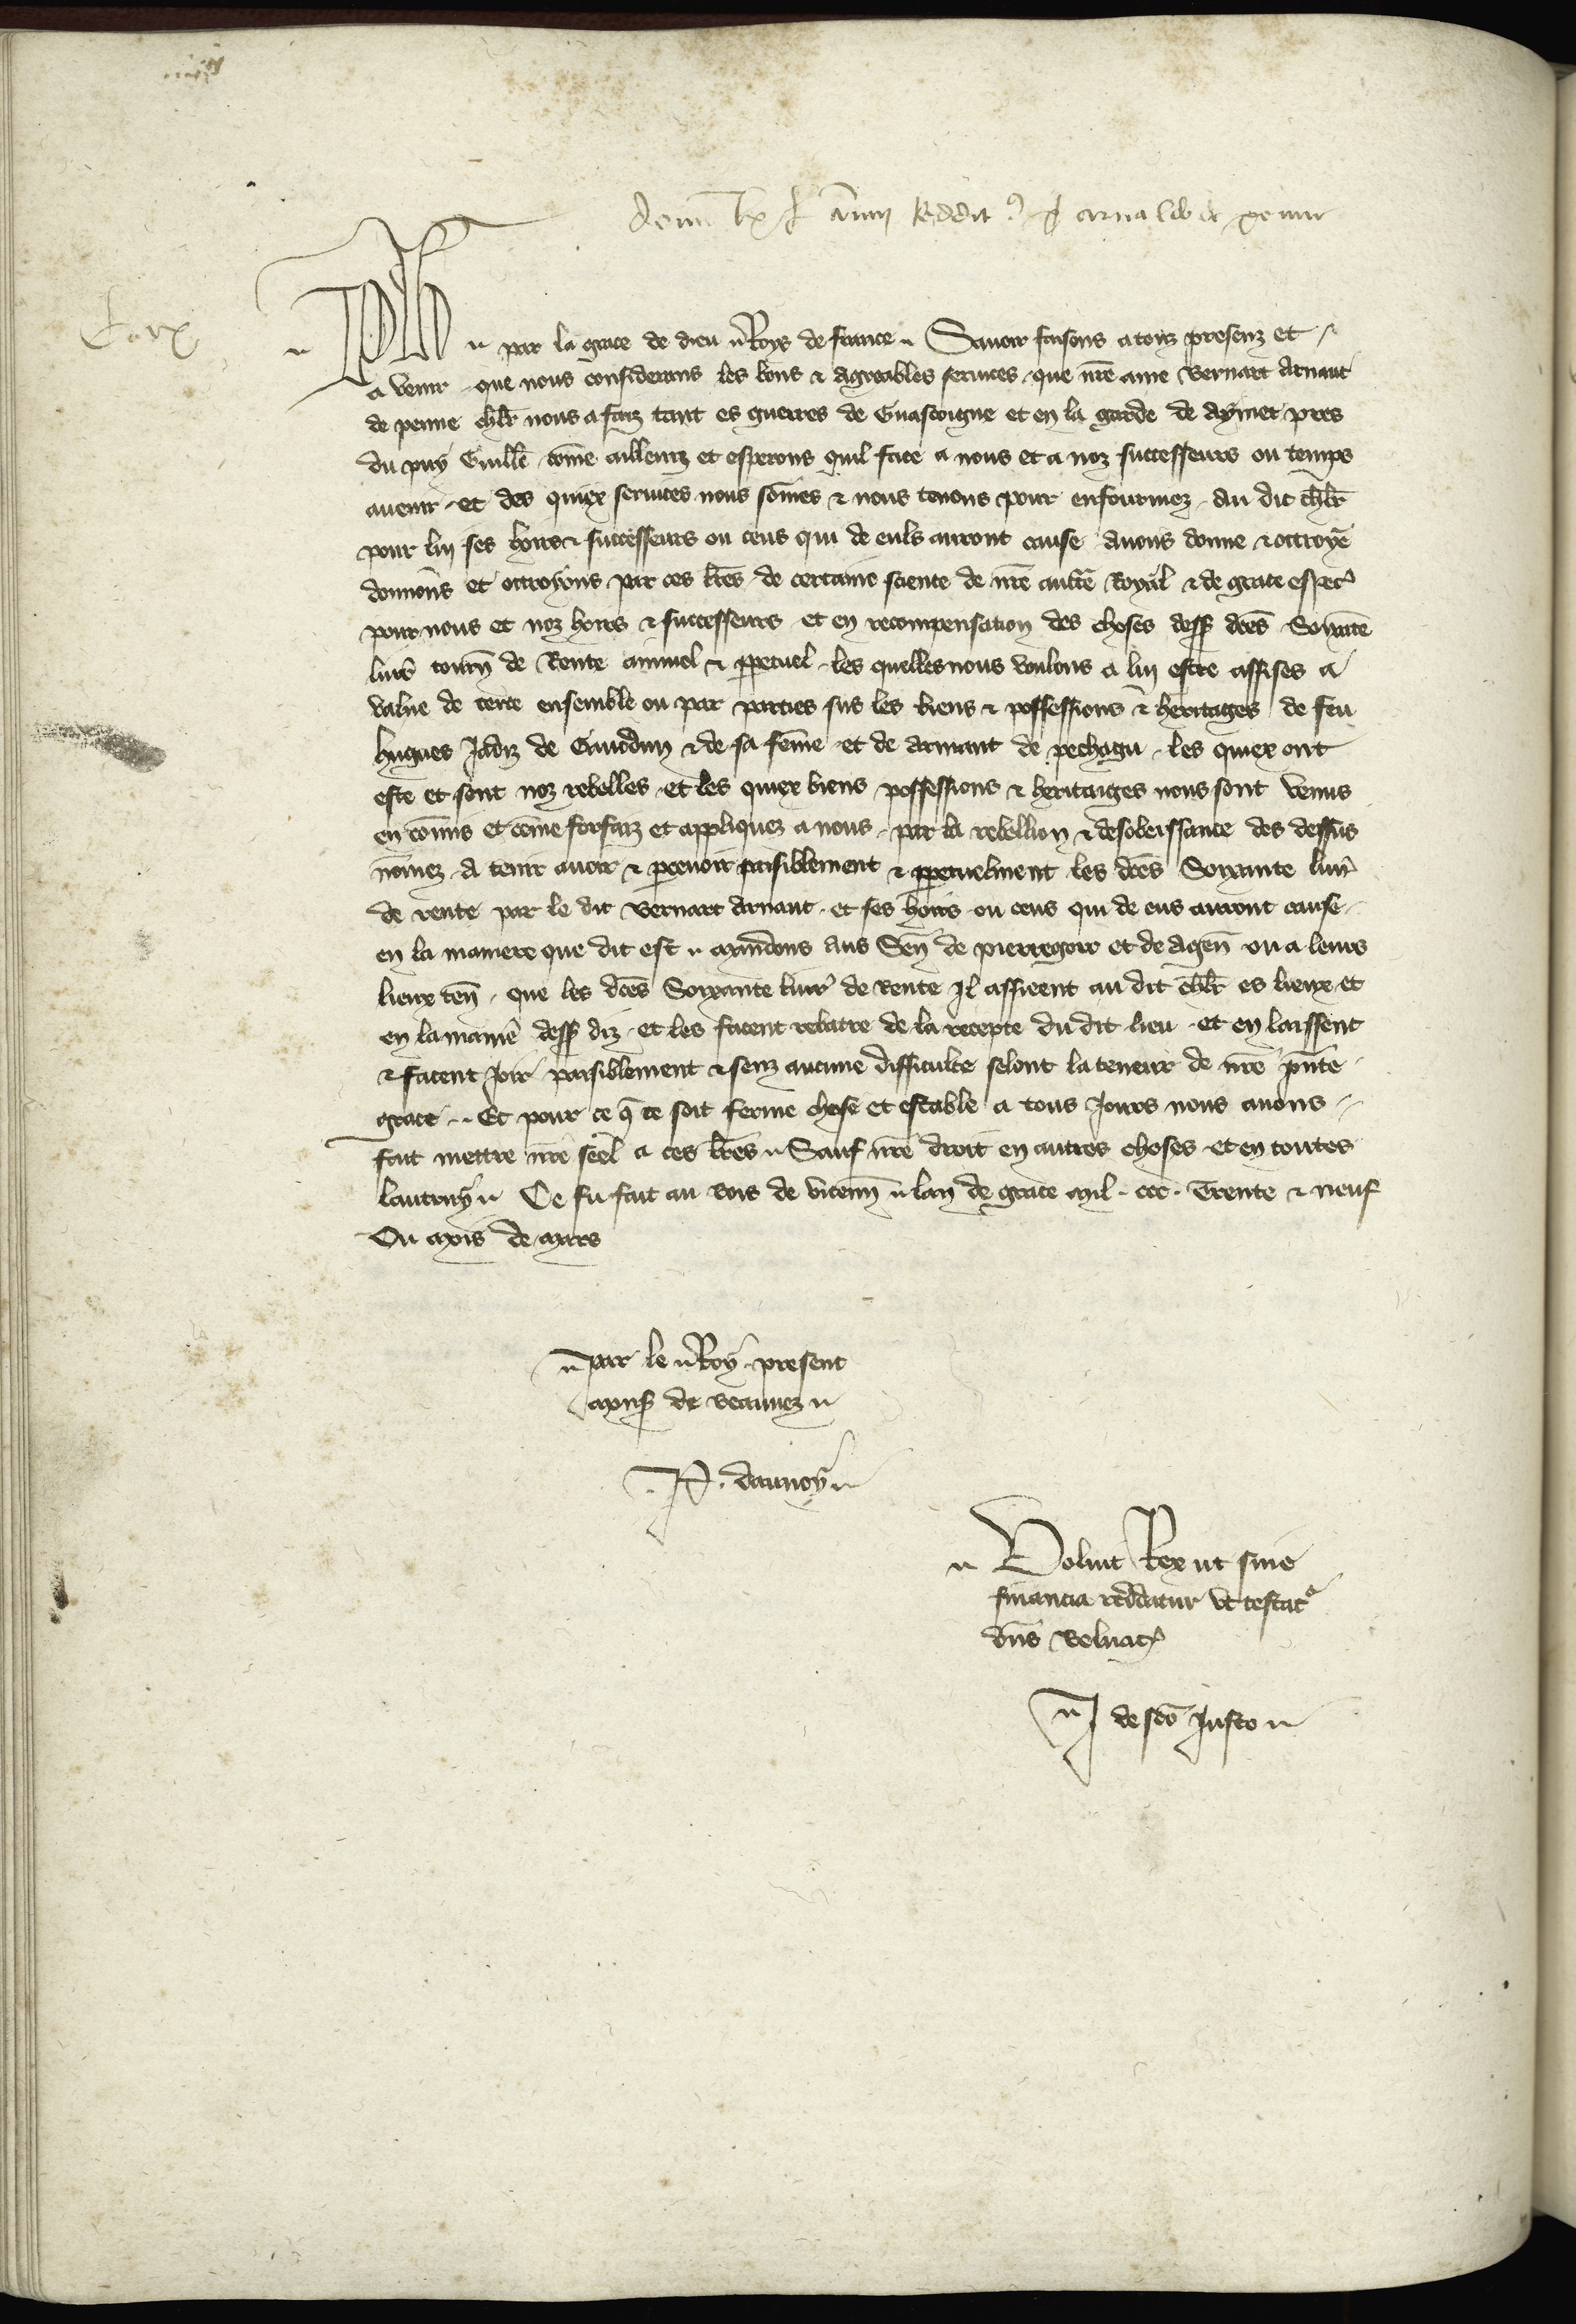 Ph
par la grace de dieu Roys de france Savoir faisons a touz presenz et
a venir que nous considerans les bons & agreables services que nrē ame Bernart Arnaut
de penne chlr nous a faiz tant es guerres de Guascoigne et en la garde de Aymet pres
du puy Guillē cōme ailleurs et esperons quil face a nous et a noz successeurs ou temps
avenir et des quiex services nous sōmes & nous tenons pour enfourmez au dit chlr
pour luy ses hoirs & successeurs ou ceus qui de euls auront cause avons donne & octroye
donnons et octroyons par ces lrēs de certaine science de nrē auctē Royal & de grace espec
pour nous et noz hoirs & successeurs et en recompensation des choses dess dcēs Soixātē
livrs tourn de Rente annuel & ppetuel les quelles nous voulons a luy estre assises a
value de terre ensemble ou par parties sus les biens & possessions & heritages de feu
hugues Jadiz de & de sa fēme et de Armant de pechagu les quiex ont
este et sont noz rebelles et les quiex biens possessions & heritaiges nous sont venus
en cōmis et cōme forfaiz et appliquez a nous par la rebellion & desobeissance des dessus
nōmez A tenir avoir & percevoir paisiblement & ppetuelment les dcēs Soixante livr
de rente par le dit Bernart Arnaut et ses hoirs ou ceus qui de eus auront cause
en la maniere que dit est Mandons aus Sen de pierregort et de Agen ou a leurs
lieux ten que les dcēs Soixante livr de Rente Il assieent au dit chlr es lieux et
en la manie dess diz et les facent rabatre de la recepte du dit lieu et en laissent
& facent Joir paisiblement & senz aucune difficulte selont la teneur de nrē pnte
grace Et pour ce q ce soit ferme chose et estable a tous Jours nous avons
fait mettre nrē seel a ces lrēs Sauf nrē droit en autres choses et en toutes
lautruy Ce fu fait au Bois de vicenn lan de grace Mil ccc Trente & neuf
Ou Mois de Mars
par le Roy present
Mons de Beauvez
P. daunoy
Voluit Rex ut sine
financia reddatur ut testat
dns Beluac
J de sco Justo